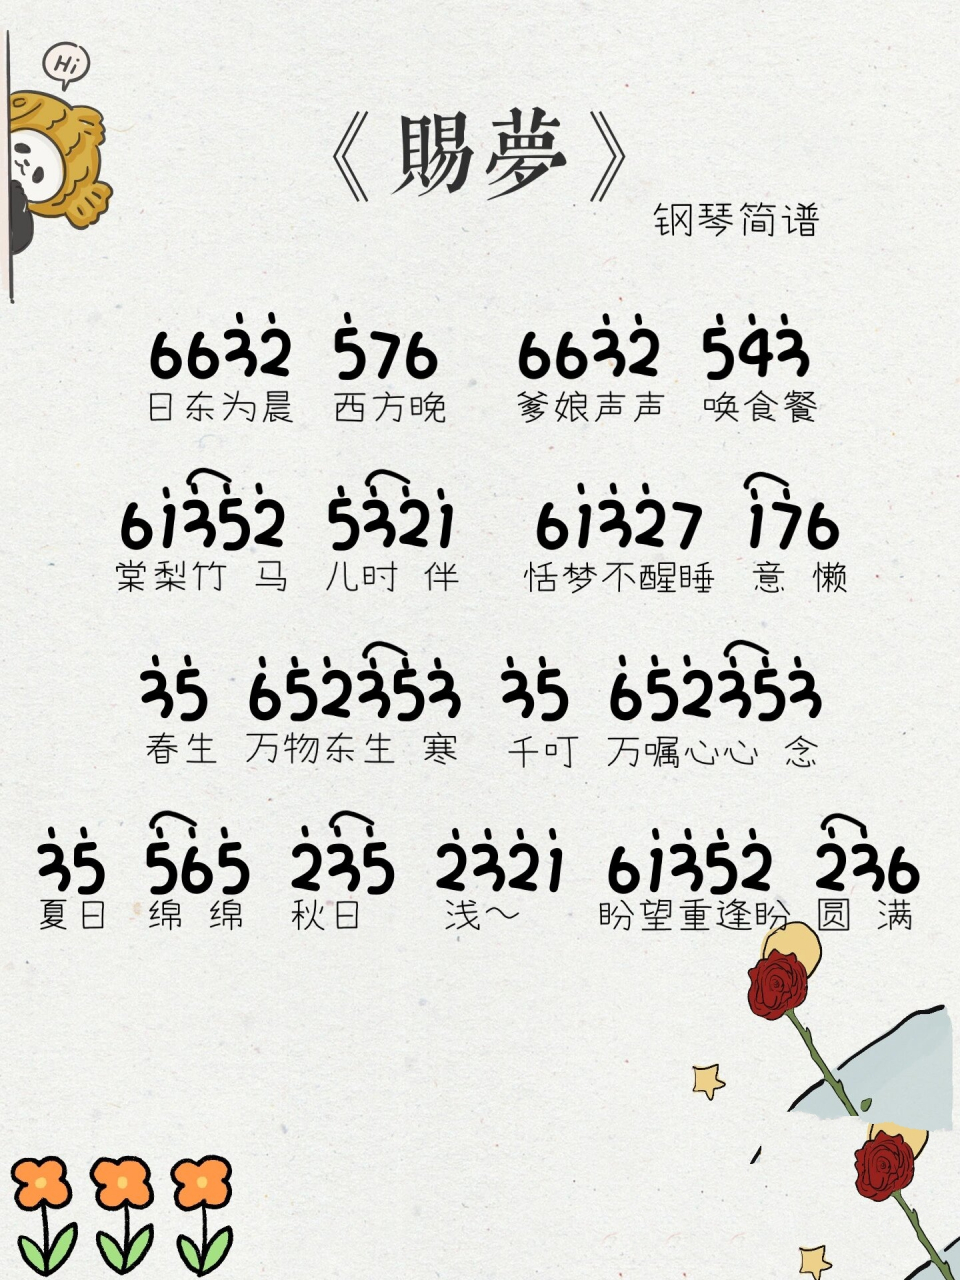 Hi
《賜夢》
钢琴简谱
663̇2̇ 5̇76 663̇2̇ 5̇4̇3̇
日东为晨 西方晚 爹娘声声 唤食餐
61̇3̇5̇2̇ 5̇3̇2̇1̇ 61̇3̇2̇7 1̇76
棠梨竹 马 儿时 伴 恬梦不醒睡 意 懒
3̇5̇ 6̇5̇2̇3̇5̇3̇ 3̇5̇ 6̇5̇2̇3̇5̇3̇
春生 万物东生 寒 千叮 万嘱心心 念
3̇5̇ 5̇6̇5̇ 2̇3̇5̇ 2̇3̇2̇1̇ 61̇3̇5̇2̇ 2̇3̇6
夏日 绵 绵 秋日 浅～ 盼望重逢盼 圆 满